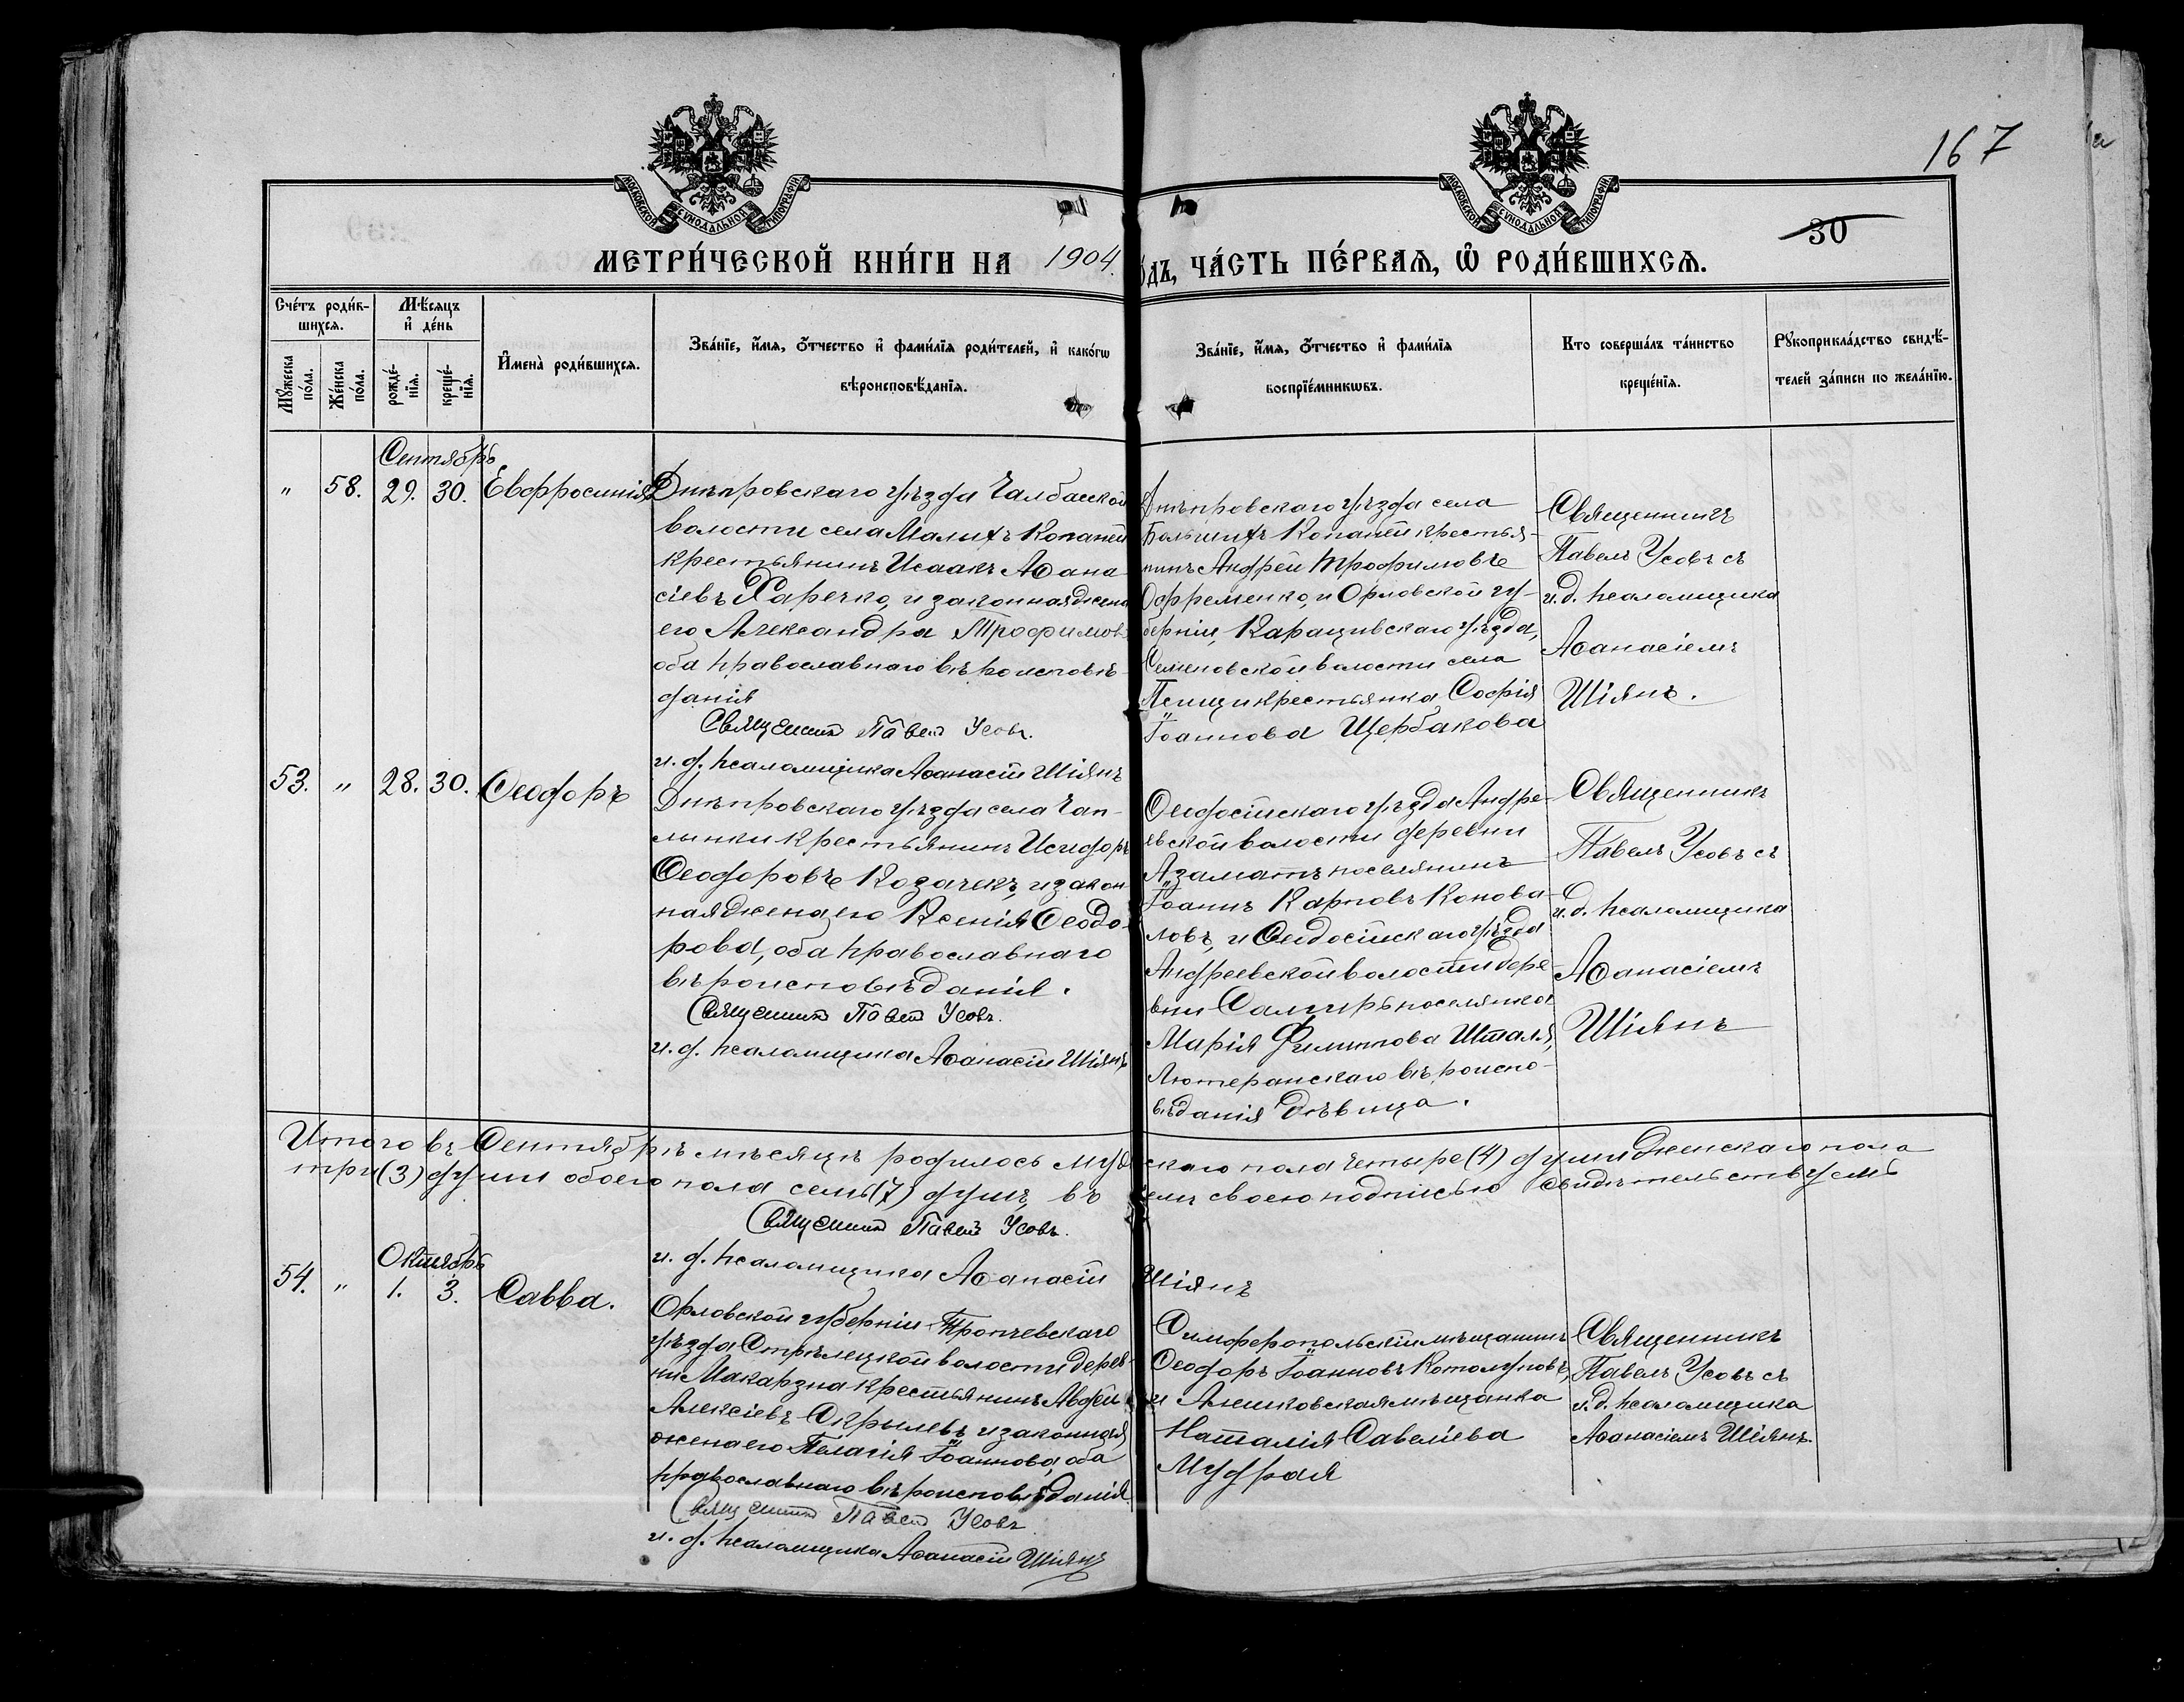 167
30
МОСКОВСКОЙ СѴНОДАЛЬНОЙ ТИПОГРАФІИ
МОСКОВСКОЙ СѴНОДАЛЬНОЙ ТИПОГРАФІИ
МЕТРИ́ЧЕСКОЙ КНИ́ГИ НА 1904. ѻ́дъ, ЧА́СТЬ ПЕ́РВАѦ, Ѡ҆ РОДИ́ВШИХСѦ.
Сче́тъ роди́в-
шихсѧ.
Мꙋ́жеска по́ла.
Же́нска по́ла.
Мѣ́сѧцъ
и҆ де́нь
рожде́-
нїѧ.
креще́-
нїѧ.
И҆мена̀ роди́вшихсѧ.
Зва́нїе, и҆́мѧ, ѻ҆́тчество и҆ фами́лїѧ роди́телей, и҆ како́гѡ
вѣроисповѣ́данїѧ.
Зва́нїе, и҆́мѧ, ѻ҆́тчество и҆ фами́лїѧ
воспрїе́мникѡвъ.
Кто соверша́лъ та́инство
креще́нїѧ.
Рꙋкоприкла́дство свидѣ́-
телей за́писи по жела́нїю.
Сентябрь
" 58. 29. 30. Евфросинія
Днѣпровскаго уѣзда Чалбасской
волости села Малыхъ Копаней
крестьянинъ Исаакъ Аѳана-
сіевъ Харечко, и законная жена
его Александра Трофимов
оба православнаго вѣроисповѣ-
данія
Священникъ Павелъ Усовъ.
и. д. псаломщика Аѳанасій Шіянъ
Днѣпровскаго уѣзда села
Большихъ Копаней крестья-
нинъ Андрей Трофимовъ
Ефременко, и Орловской гу-
берніи, Карачивскаго уѣзда,
Семеновской волости села
крестьянка Софія
Іоаннова Щербакова
Священникъ
Павелъ Усовъ съ
и. д. псаломщика
Аѳанасіемъ
Шіянъ.
53. " 28. 30. Ѳеодоръ
Днѣпровскаго уѣзда села Чап-
лынки крестьянинъ Исидоръ
Ѳеодоровъ Козачекъ, и закон-
ная жена его Ксенія Ѳеодо-
рова, оба православнаго
вѣроисповѣданія.
Священникъ Павелъ Усовъ.
и. д. псаломщика Аѳанасій Шіянъ
Ѳеодосійскаго уѣзда Андре-
евской волости деревни
Азаматъ поселянинъ
Іоаннъ Карповъ Конова-
ловъ, и Ѳеодосійскаго уѣзда
Андреевской волости дере-
вни поселянка
Марія Филиппова Шталя,
Лютеранскаго вѣроиспо-
вѣданія дѣвица.
Священникъ
Павелъ Усовъ съ
и. д. псаломщика
Аѳанасіемъ
Шіянъ
Итого въ Сентябрѣ мѣсяцѣ родилось мужскаго пола четыре (4) души женскаго пола
три (3) души обоего пола семь (7) душъ, въ чемъ своею подписью свидѣтельствуемъ
Священникъ Павелъ Усовъ.
и. д. псаломщика Аѳанасій Шіянъ
Октябрь
54. " 1. 3. Савва.
Орловской губерніи
уѣзда Стрѣлецкой волости дерев-
ни крестьянинъ Авдей
Алексіевъ Скрылевъ и законная
жена его Пелагія Іоаннова, оба
православнаго вѣроисповѣданія
Священникъ Павелъ Усовъ
и. д. псаломщика Аѳанасій Шіянъ
Симферопольскій мѣщанинъ
Ѳеодоръ Іоанновъ Котолуповъ,
и Алешковская мѣщанка
Наталія Савеліева
Мудрая
Священникъ
Павелъ Усовъ съ
и. д. псаломщика
Аѳанасіемъ Шіянъ.